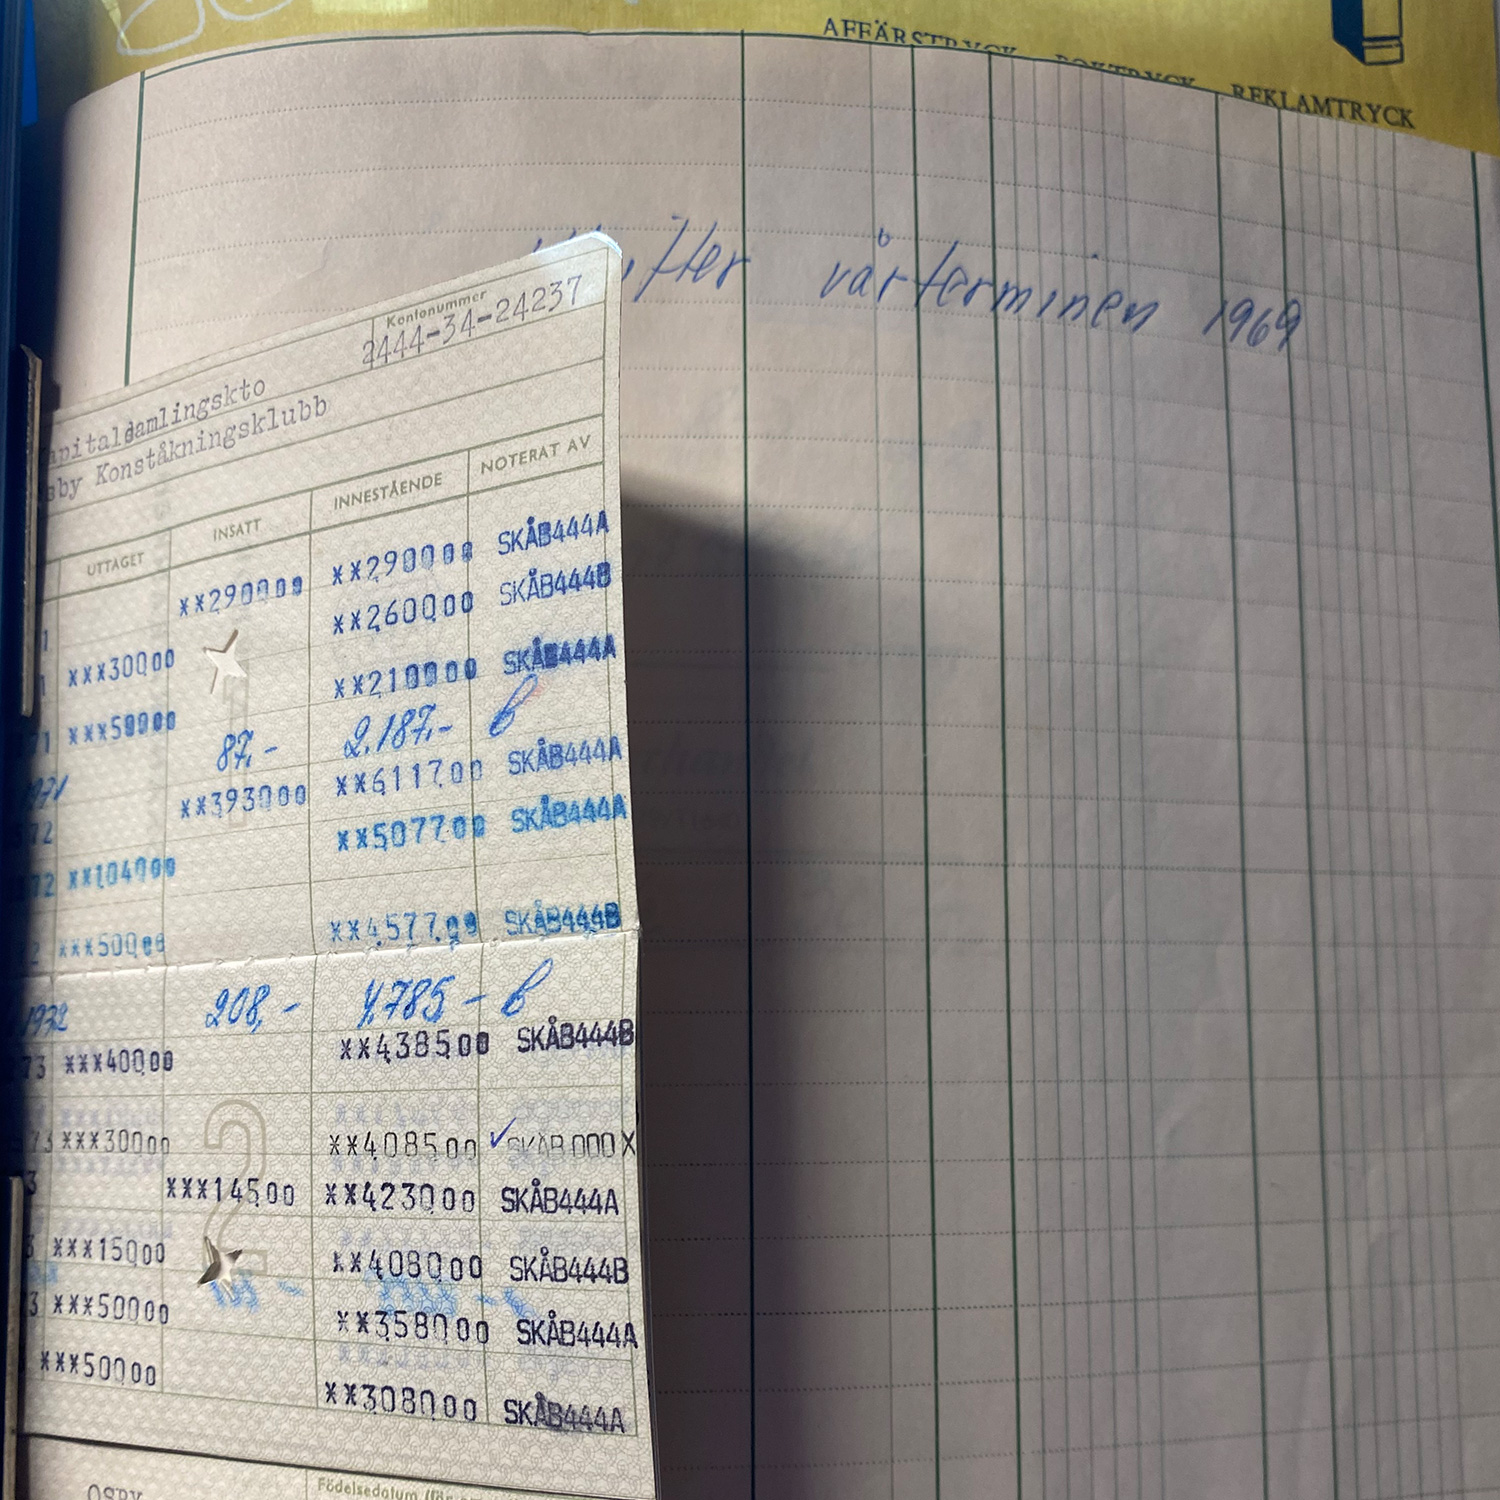 AFFÄRSTRYCK BOKTRYCK REKLAMTRYCK
vårterminen 1969
Kontonummer
2444-34-24237
apitalsamlingskto
sby Konståkningsklubb
UTTAGET INSATT INNESTÅENDE NOTERAT AV
1 **290000 **290000 SKÅB444A
1 ***30000 **260000 SKÅB444B
71 ***50000 **210000 SKÅB444A
971 87,- 2.187,- b
72 **393000 **611700 SKÅB444A
72 **104000 **507700 SKÅB444A
2 ***50000 **457700 SKÅB444B
1972 208,- 4.785,- b
73 ***40000 **438500 SKÅB444B
73 ***30000 **408500 ✓ SKÅB000X
3 ***14500 **423000 SKÅB444A
3 ***15000 **408000 SKÅB444B
3 ***50000 **358000 SKÅB444A
***50000 **308000 SKÅB444A
OSBY Födelsedatum